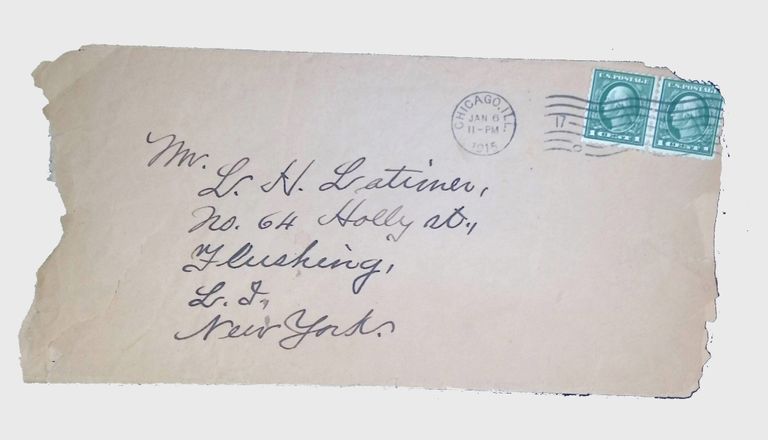 U.S. POSTAGE U.S. POSTAGE
CHICAGO, ILL.
JAN 6
11-PM
1915
17-
1 CENT 1 1 CENT 1
Mr.
L. H. Latimer,
No. 64 Holly st.,
Flushing,
L. I.,
New York.